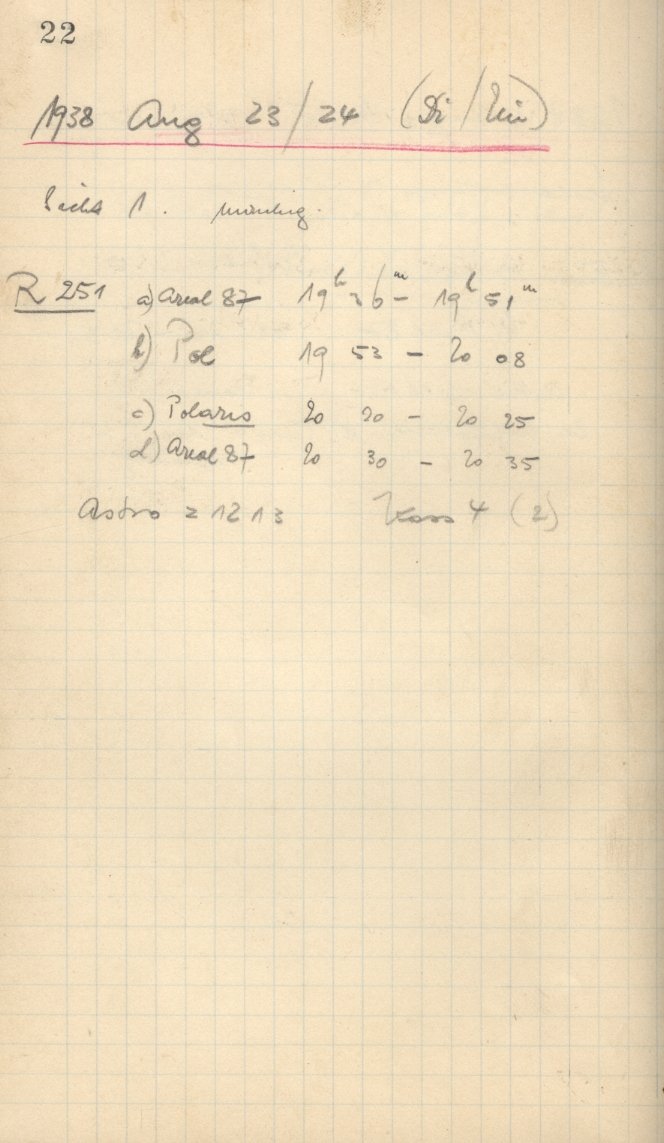 22
1938 Aug 23/24 (Di/Mi)
Sicht 1. windig.
R 251 a) Areal 87 19h 36m - 19h 51m
b) Pol 19 53 - 20 08
c) Polaris 20 20 - 20 25
d) Areal 87 20 30 - 20 35
Astro z 12 13 4 (2)